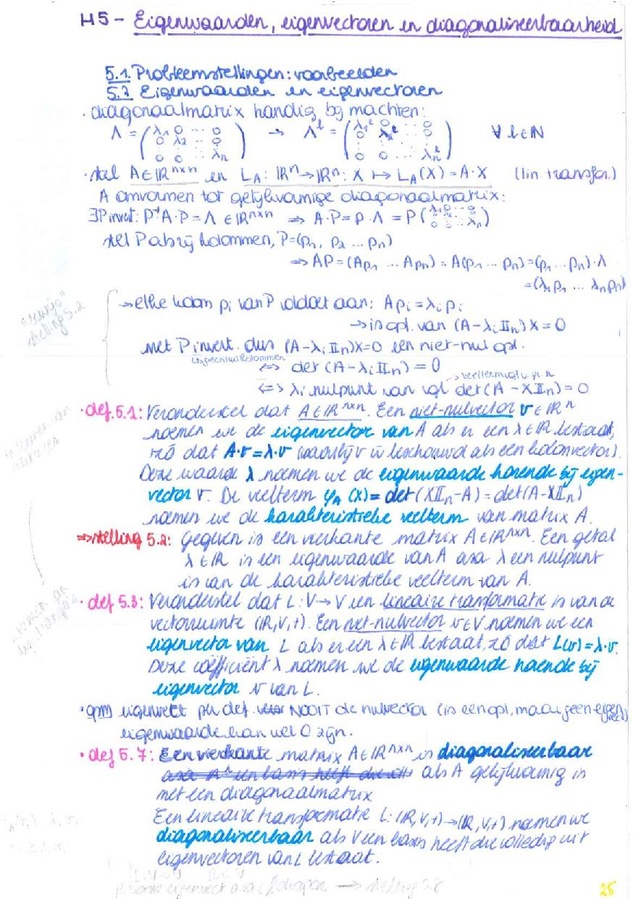 H5 - Eigenwaarden, eigenvectoren en diagonaliseerbaarheid
5.1. Probleemstellingen: voorbeelden
5.2 Eigenwaarden en eigenvectoren
· diagonaalmatrix handig bij machten:
Λ = (λ₁ 0 ... 0 / 0 λ₂ ... 0 / 0 0 ... λₙ) → Λˡ = (λ₁ˡ 0 ... 0 / 0 λ₂ˡ ... 0 / 0 0 ... λₙˡ) ∀ l∈ℕ
· stel A∈ℝⁿˣⁿ en L_A: ℝⁿ→ℝⁿ: X ↦ L_A(X) = A·X (lin. transfor.)
A omvormen tot gelijkvormige diagonaalmatrix:
∃P invert: P⁻¹A·P = Λ ∈ℝⁿˣⁿ ⇒ A·P = P·Λ = P(λ₁ 0 ... 0 / 0 0 ... λₙ)
stel P als rij kolommen, P=(p₁ p₂ ... pₙ)
⇒ AP = (Ap₁ ... Apₙ) = A(p₁ ... pₙ) = (p₁ ... pₙ)·λ
= (λ₁p₁ ... λₙpₙ)
→ elke kolom pᵢ van P voldoet aan: Apᵢ = λᵢpᵢ
→ is opl. van (A-λᵢ𝕀ₙ)X = 0
met P invert. dus (A-λᵢ𝕀ₙ)X=0 een niet-nul opl.
⇔ det(A-λᵢ𝕀ₙ) = 0
⇔ λᵢ nulpunt van vgl det(A-X𝕀ₙ) = 0
stelling 5.2
· def 5.1: Veronderstel dat A∈ℝⁿˣⁿ. Een niet-nulvector v∈ℝⁿ
noemen we de eigenvector van A als er een λ∈ℝ bestaat,
zó dat A·v = λ·v (waarbij v is beschouwd als een kolomvector).
Deze waarde λ noemen we de eigenwaarde horende bij eigen-
vector v. De veelterm φ_A(X) = det(X𝕀ₙ-A) = det(A-X𝕀ₙ)
noemen we de karakteristieke veelterm van matrix A.
⇒ stelling 5.2: gegeven is een vierkante matrix A∈ℝⁿˣⁿ. Een getal
λ∈ℝ is een eigenwaarde van A asa λ een nulpunt
is van de karakteristieke veelterm van A.
· def 5.3: Veronderstel dat L: V→V een lineaire transformatie is van de
vectorruimte (ℝ,V,+). Een niet-nulvector v∈V noemen we een
eigenvector van L als er een λ∈ℝ bestaat, zó dat L(v)=λ·v.
Deze coëfficiënt λ noemen we de eigenwaarde horende bij
eigenvector v van L.
· opm eigenvect per def. NOOIT de nulvector (is een opl, maar geen eigen)
eigenwaarde kan wel 0 zijn.
· def 5.7: Een vierkante matrix A∈ℝⁿˣⁿ is diagonaliseerbaar
als A gelijkvormig is
met een diagonaalmatrix
Een lineaire transformatie L: (ℝ,V,+)→(ℝ,V,+) noemen we
diagonaliseerbaar als V een basis heeft die volledig uit
eigenvectoren van L bestaat.
25